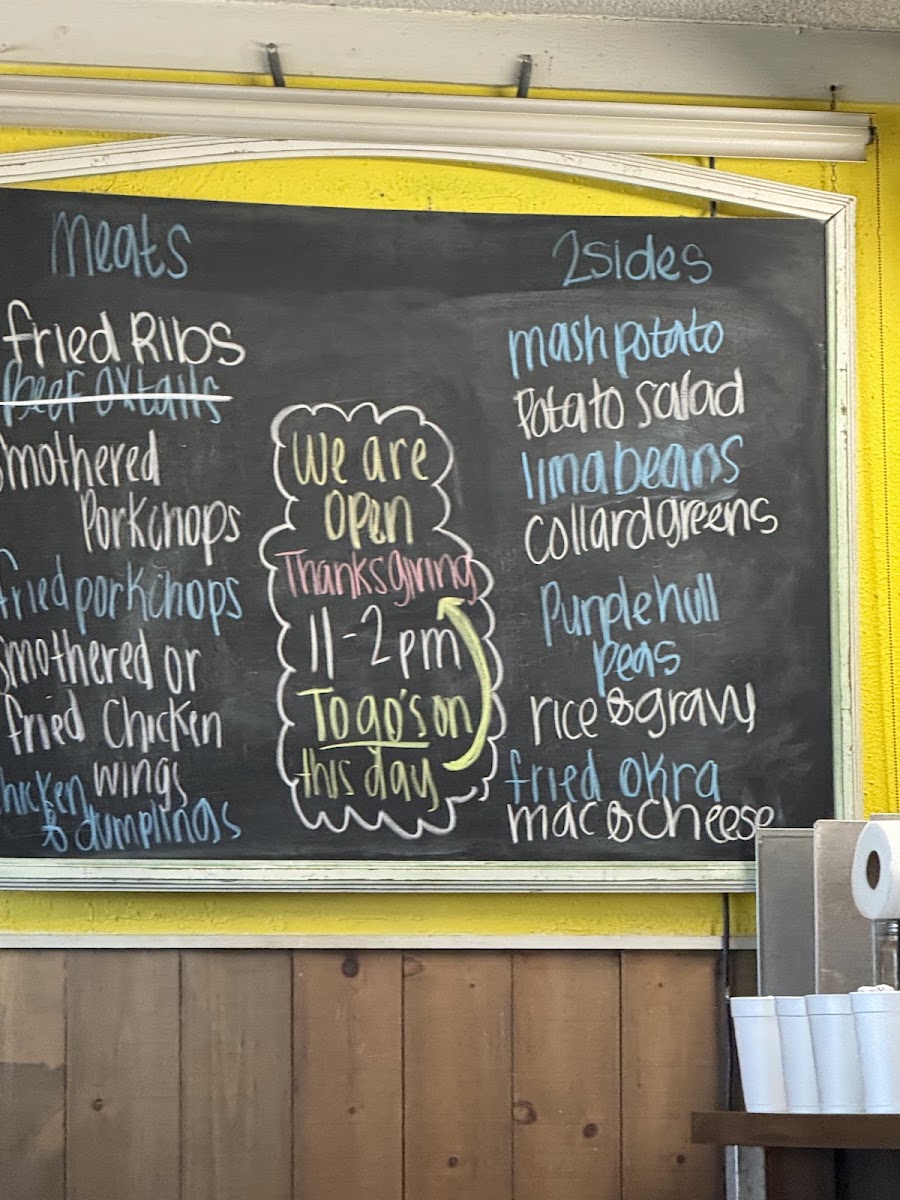 Meats
fried Ribs
Beef Oxtails
Smothered
Porkchops
fried porkchops
Smothered or
fried Chicken
wings
Chicken
& dumplings
We are
open
Thanksgiving
11-2pm
To go's on
this day
2sides
mash potato
Potato salad
lima beans
Collard greens
Purple hull
peas
rice & gravy
fried okra
mac & cheese